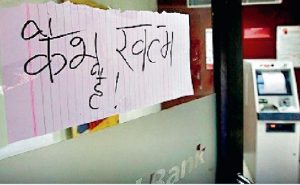 कैश खत्म
है !
Bank